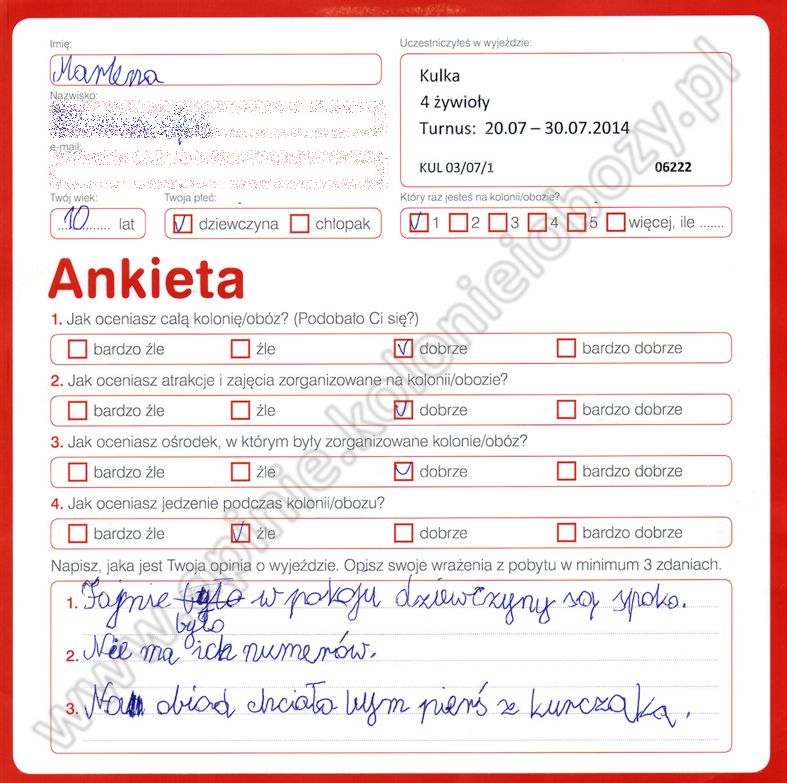 Imię:
Uczestniczyłeś w wyjeździe:
Marlena
Kulka
4 żywioły
Turnus: 20.07 – 30.07.2014
KUL 03/07/1 06222
Nazwisko:
e-mail:
Twój wiek: Twoja płeć: Który raz jesteś na kolonii/obozie?
10 lat dziewczyna chłopak 1 2 3 4 5 więcej, ile .......
Ankieta
1. Jak oceniasz całą kolonię/obóz? (Podobało Ci się?)
bardzo źle źle dobrze bardzo dobrze
2. Jak oceniasz atrakcje i zajęcia zorganizowane na kolonii/obozie?
bardzo źle źle dobrze bardzo dobrze
3. Jak oceniasz ośrodek, w którym były zorganizowane kolonie/obóz?
bardzo źle źle dobrze bardzo dobrze
4. Jak oceniasz jedzenie podczas kolonii/obozu?
bardzo źle źle dobrze bardzo dobrze
Napisz, jaka jest Twoja opinia o wyjeździe. Opisz swoje wrażenia z pobytu w minimum 3 zdaniach.
1. Fajnie było w pokoju dziewczyny są spoko.
było
2. Nie ma ich numerów.
3. Na obiad chciała bym pierś z kurczaka.
www.opinie.kolonieiobozy.pl